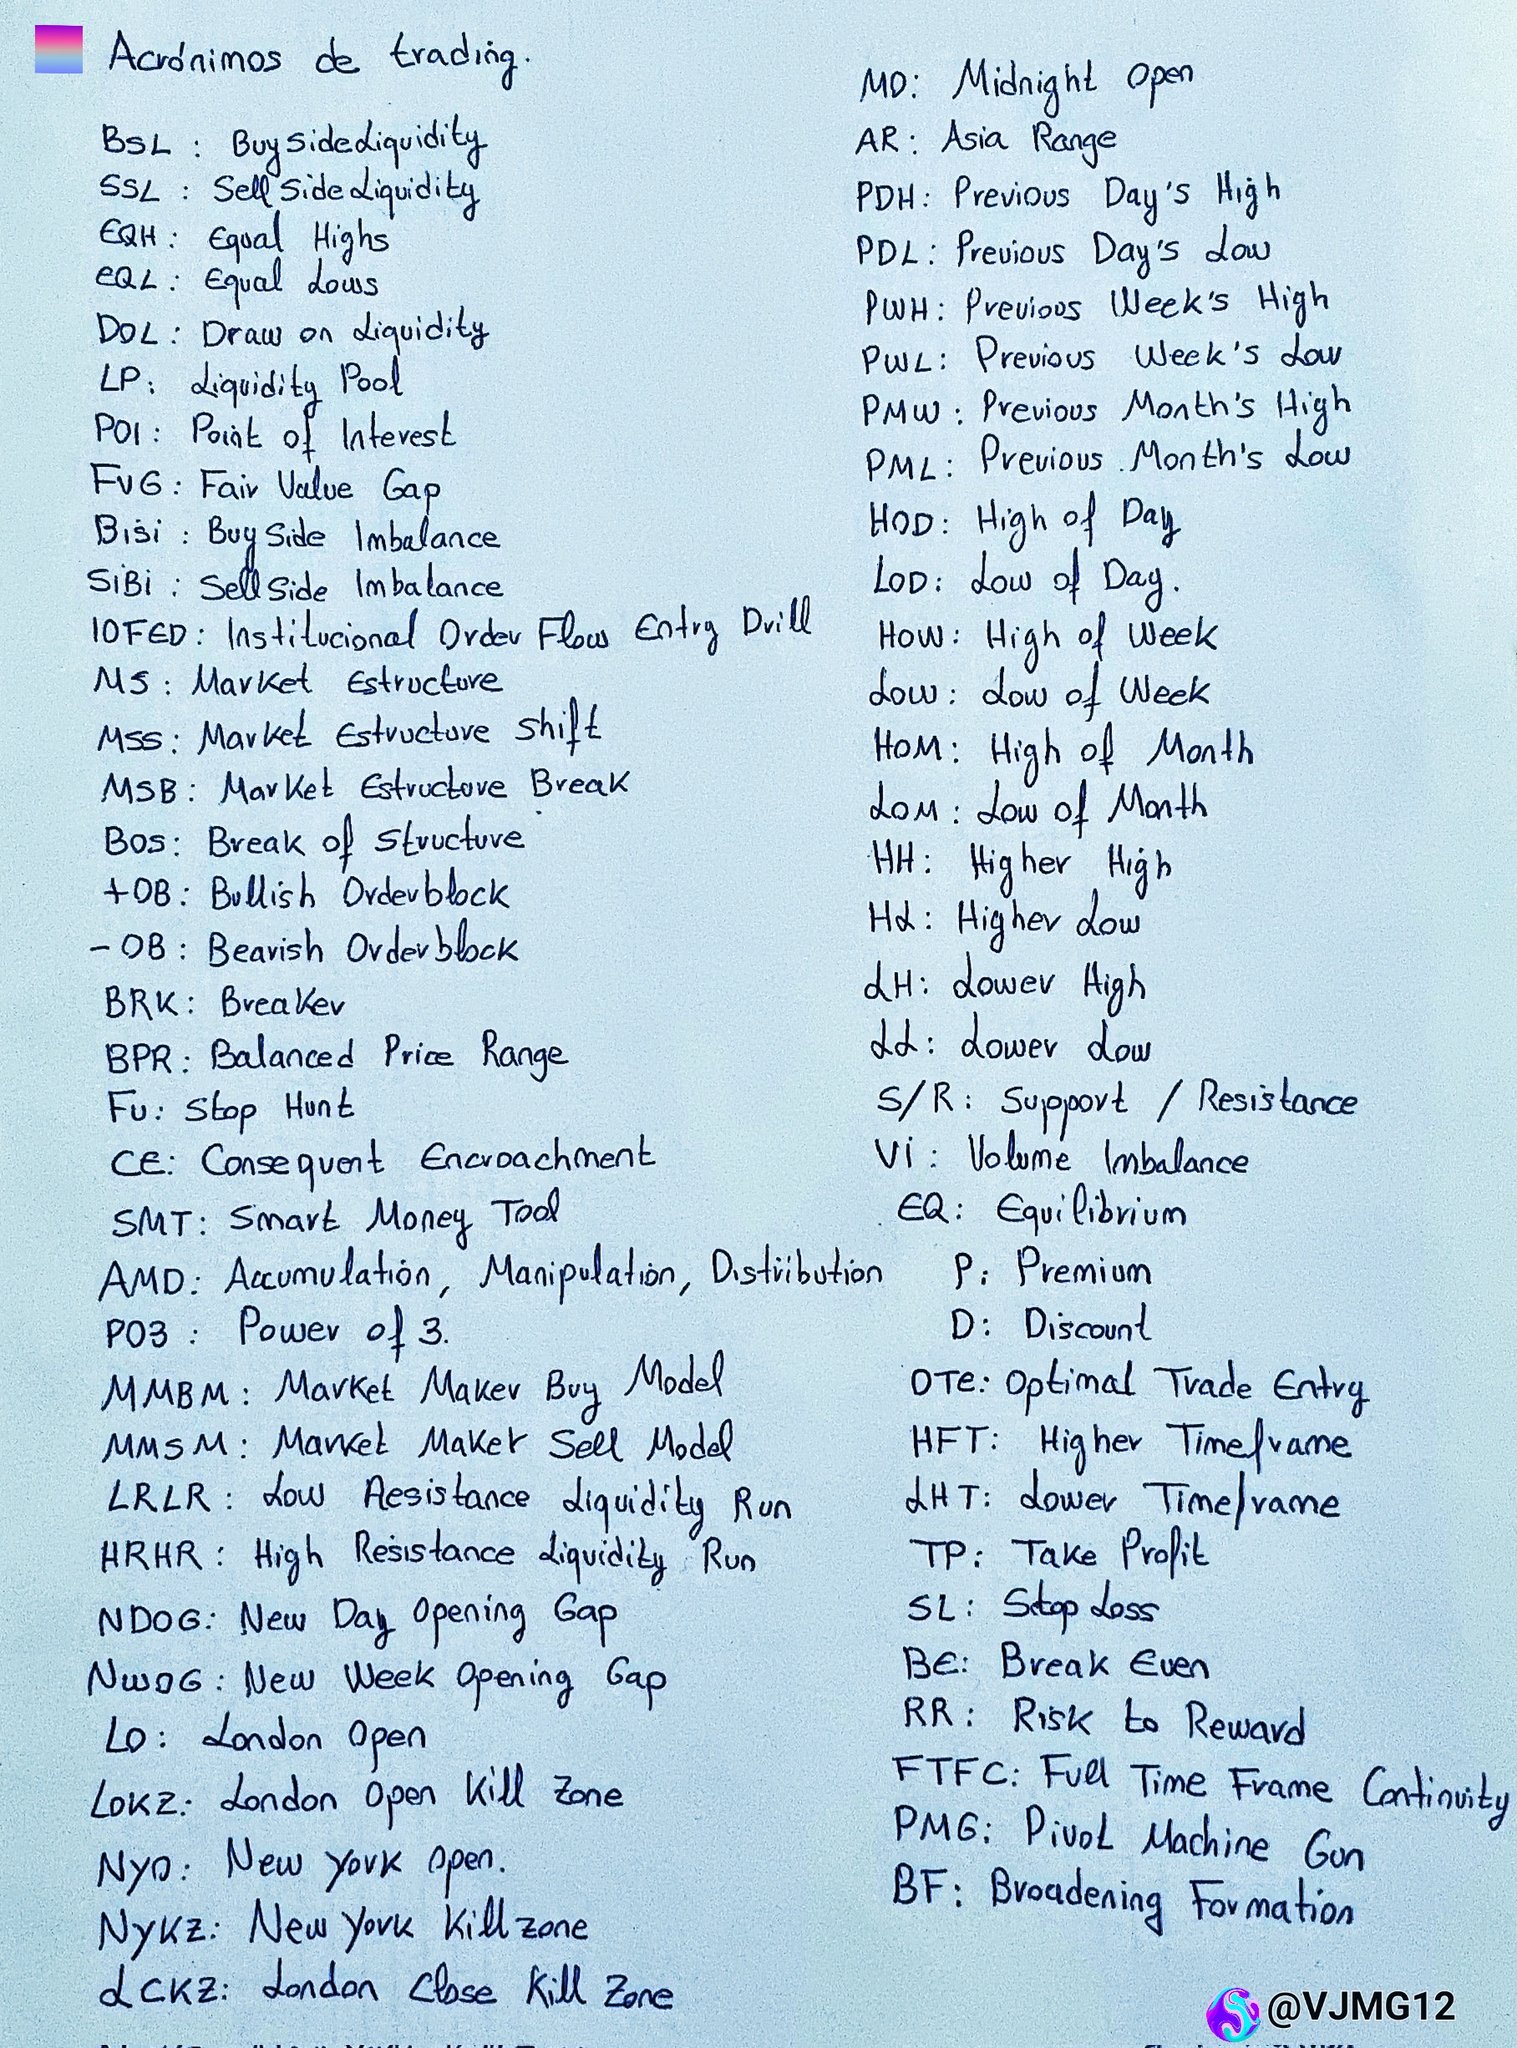 Acrónimos de trading.
BSL : Buy Side Liquidity
SSL : Sell Side Liquidity
EQH : Equal Highs
EQL : Equal Lows
DOL : Draw on Liquidity
LP : Liquidity Pool
POI : Point of Interest
FVG : Fair Value Gap
BiSi : Buy Side Imbalance
SiBi : Sell Side Imbalance
IOFED : Institucional Order Flow Entry Drill
MS : Market Estructure
MSS : Market Estructure Shift
MSB : Market Estructure Break
BOS : Break of Structure
+OB : Bullish Orderblock
-OB : Bearish Orderblock
BRK : Breaker
BPR : Balanced Price Range
FU : Stop Hunt
CE : Consequent Encroachment
SMT : Smart Money Tool
AMD : Accumulation, Manipulation, Distribution
PO3 : Power of 3.
MMBM : Market Maker Buy Model
MMSM : Market Maker Sell Model
LRLR : Low Resistance Liquidity Run
HRHR : High Resistance Liquidity Run
NDOG : New Day Opening Gap
NWOG : New Week Opening Gap
LO : London Open
LOKZ : London Open Kill Zone
NYO : New York Open.
NYKZ : New York Killzone
LCKZ : London Close Kill Zone
MO : Midnight Open
AR : Asia Range
PDH : Previous Day's High
PDL : Previous Day's Low
PWH : Previous Week's High
PWL : Previous Week's Low
PMW : Previous Month's High
PML : Previous Month's Low
HOD : High of Day
LOD : Low of Day.
HOW : High of Week
LOW : Low of Week
HOM : High of Month
LOM : Low of Month
HH : Higher High
HL : Higher Low
LH : Lower High
LL : Lower Low
S/R : Support / Resistance
Vi : Volume Imbalance
EQ : Equilibrium
P : Premium
D : Discount
OTE : Optimal Trade Entry
HFT : Higher Timeframe
LHT : Lower Timeframe
TP : Take Profit
SL : Stop Loss
BE : Break Even
RR : Risk to Reward
FTFC : Full Time Frame Continuity
PMG : Pivot Machine Gun
BF : Broadening Formation
@VJMG12